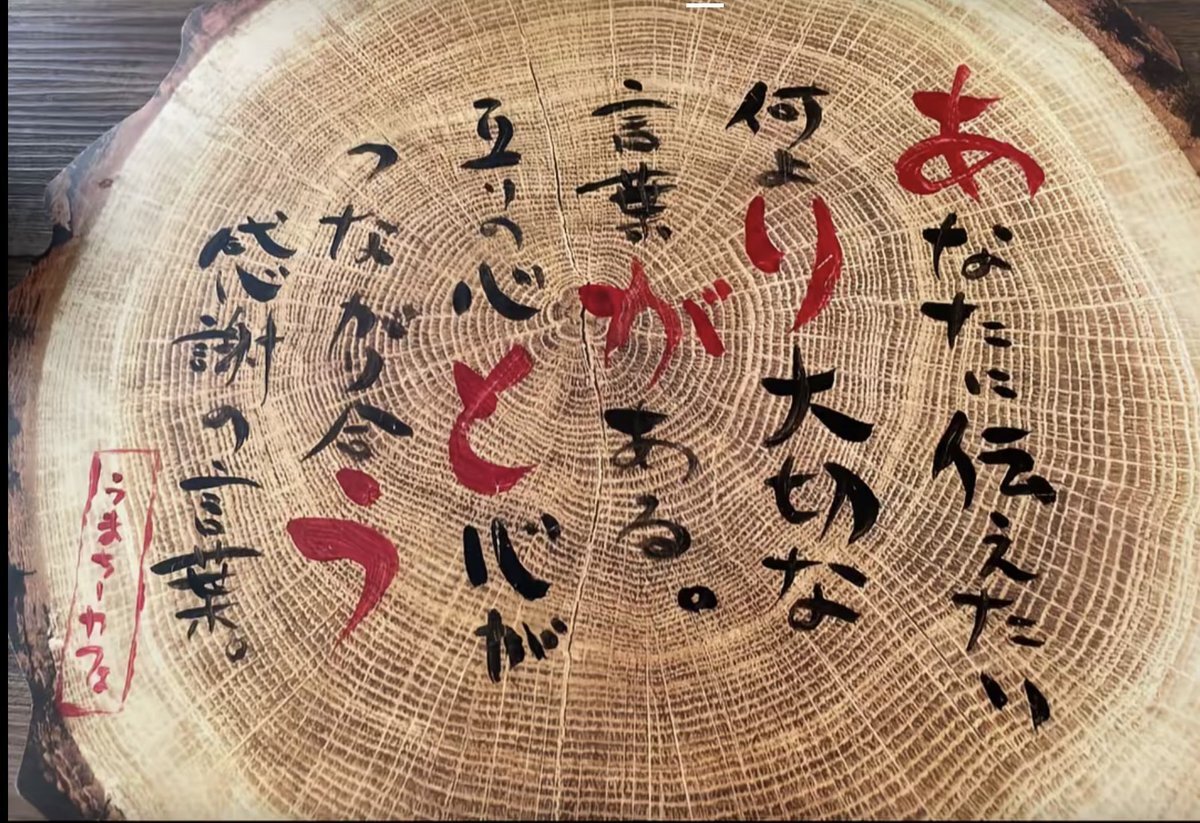 あなたに伝えたい
何より大切な
言葉がある。
互いの心と心が
つながり合う
感謝の言葉。